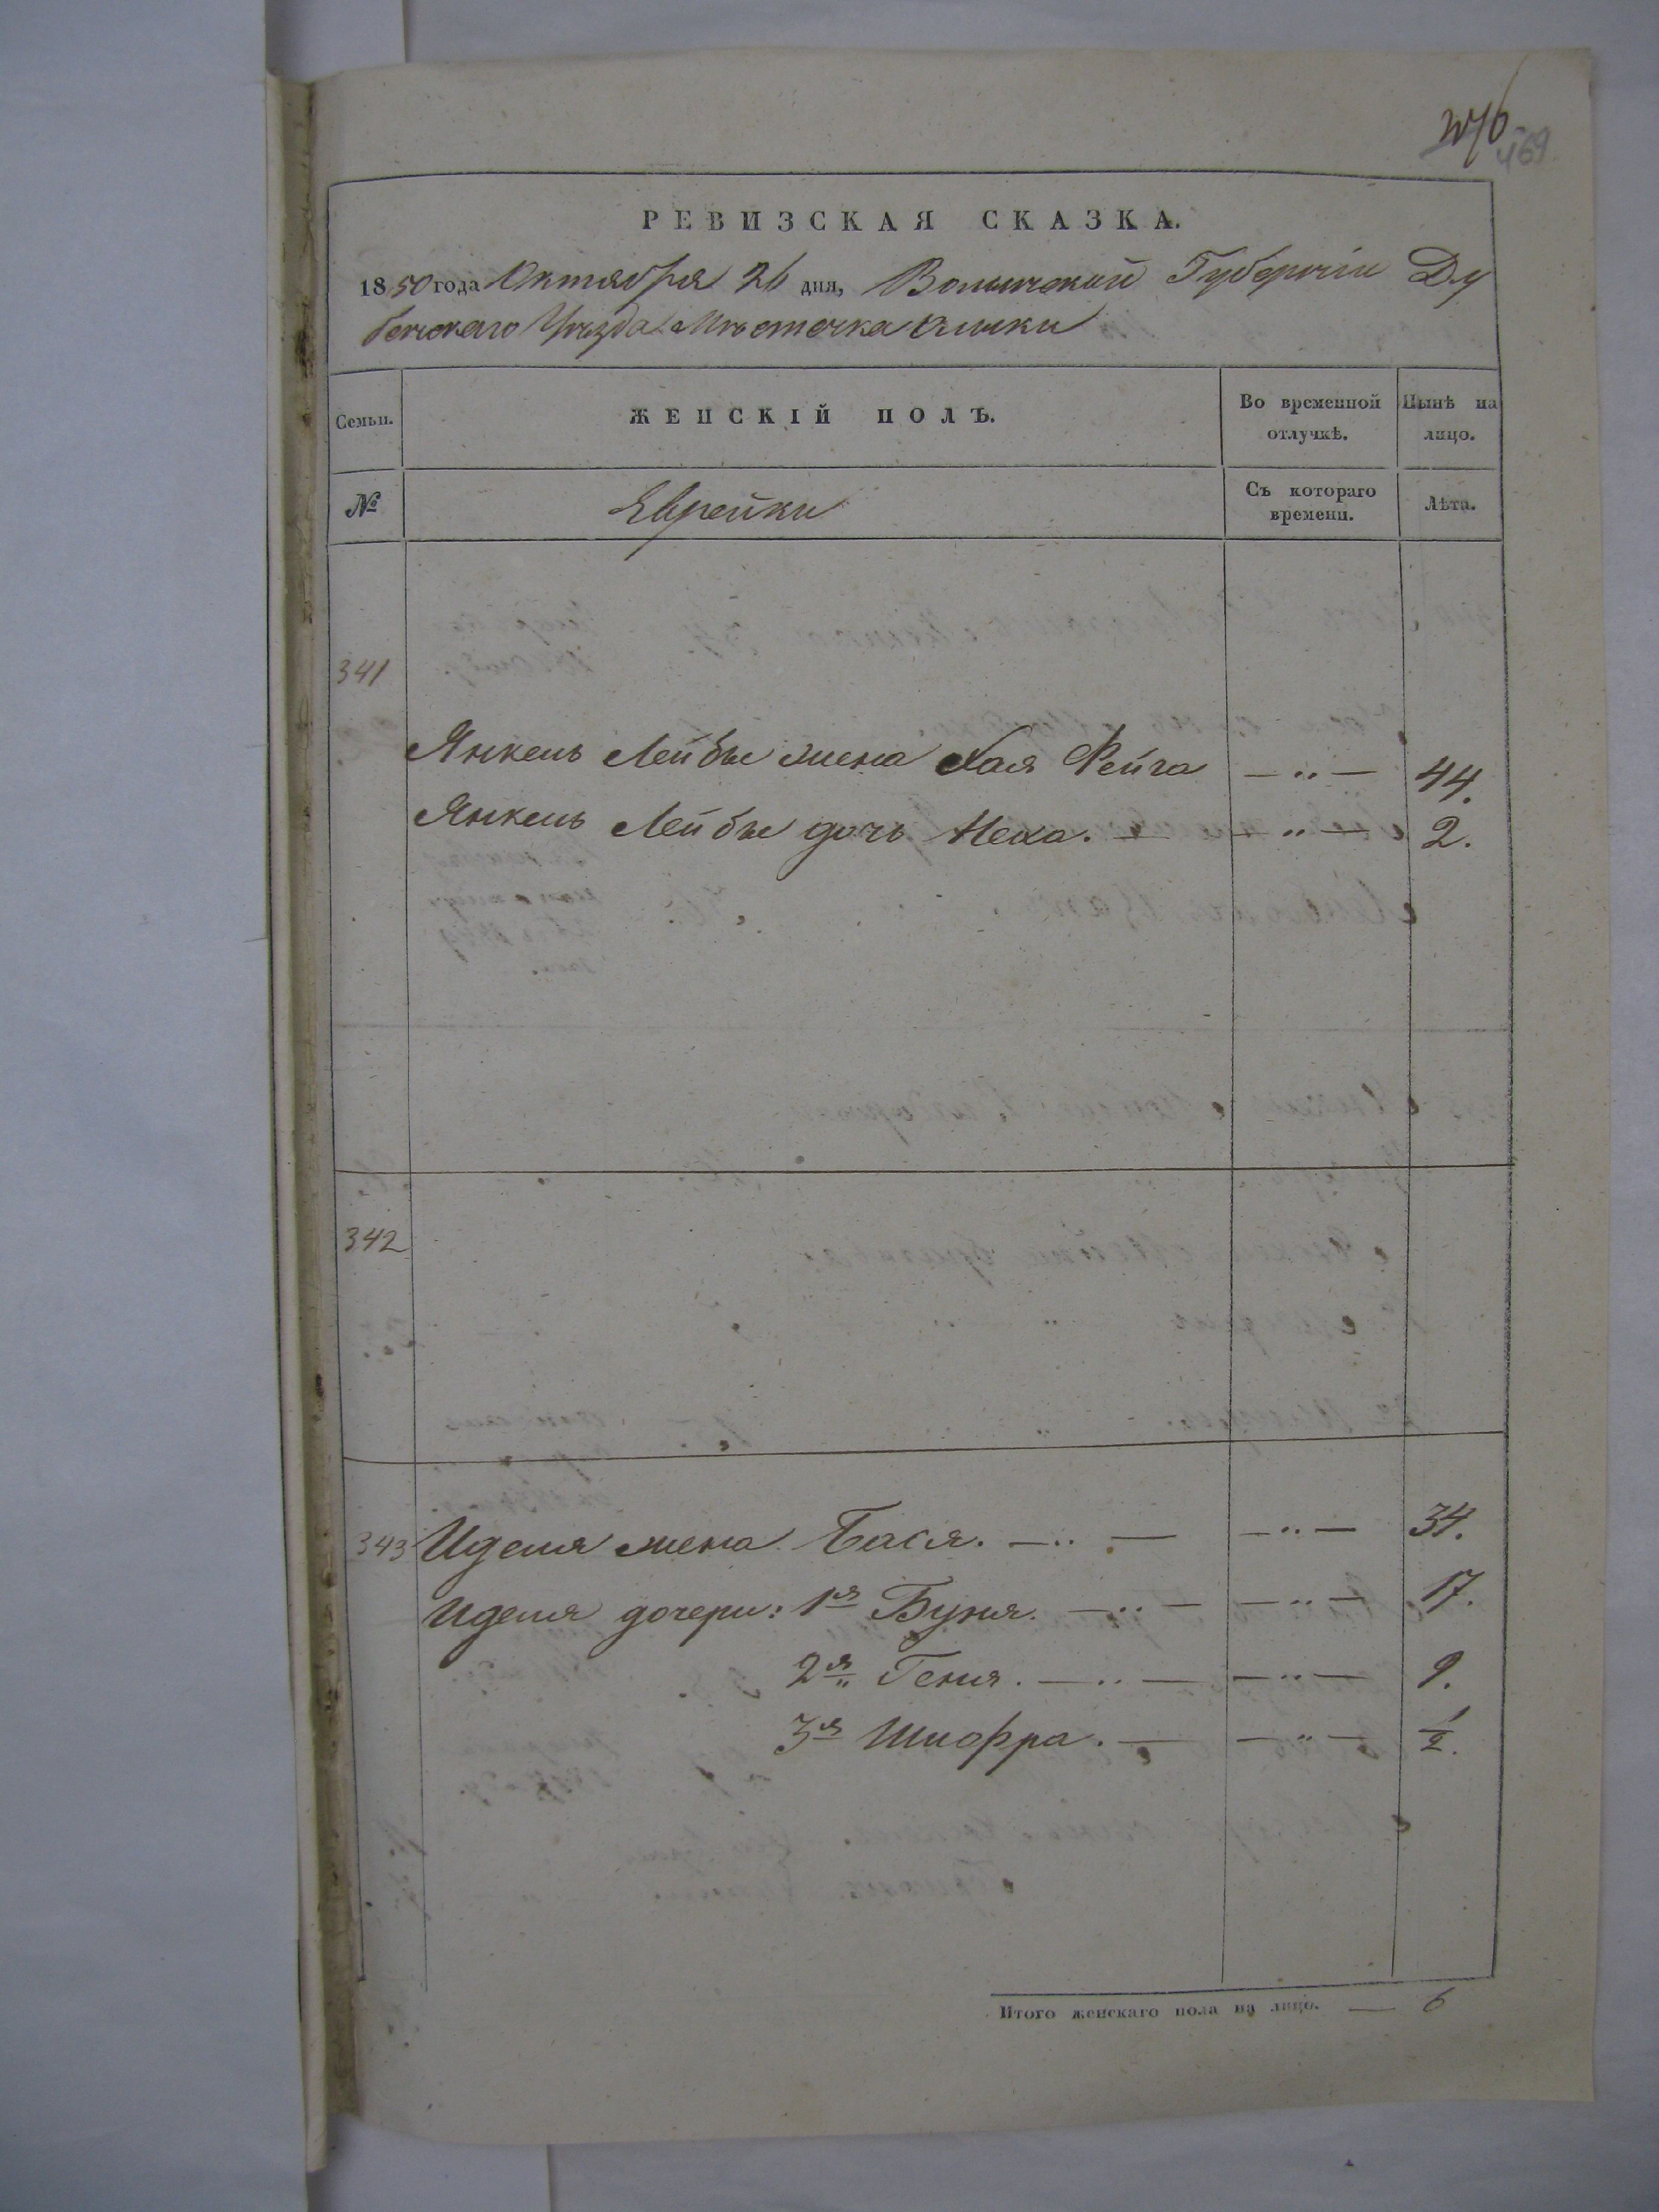 469
РЕВИЗСКАЯ СКАЗКА.
1850 года Октября 26 дня, Волынской Губерніи Ду
бенскаго Уѣзда Мѣстечка Олыки
Семьи. ЖЕНСКІЙ ПОЛЪ. Во временной отлучкѣ. Нынѣ на лицо.
№ Еврейки Съ котораго времени. Лѣта.
341
Янкель Лейбы жена Хая Фейга — „ — 44.
Янкель Лейбы дочь Неха. — — „ — 2.
342
343 Иделя жена Бася. — „ — — „ — 34.
Иделя дочери: 1я Буня. — „ — — „ — 17.
2я Геня. — „ — — „ — 9.
3я Шифра. — — „ — 1/2.
Итого женскаго пола на лицо. — 6